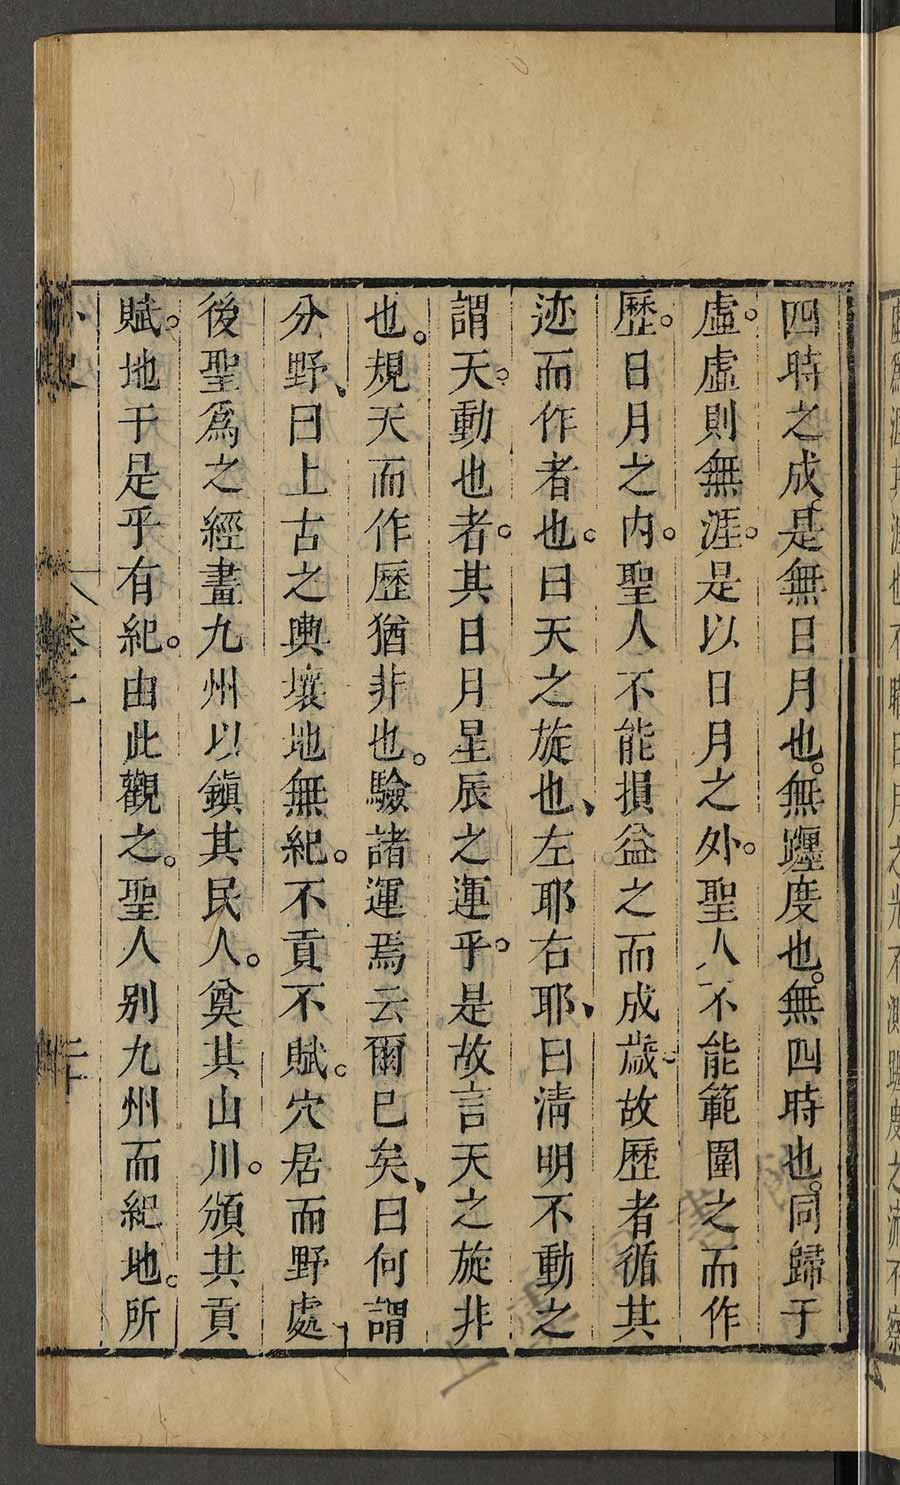 四時之成是無日月也。無躔度也。無四時也。同歸于
虛。虛則無涯。是以日月之外。聖人不能範圍之而作
歷。日月之內。聖人不能損益之而成歲。故歷者循其
迹而作者也。曰天之旋也、左耶右耶、曰清明不動之
謂天。動也者。其日月星辰之運乎。是故言天之旋非
也。規天而作歷猶非也。驗諸運焉云爾已矣、曰何謂
分野、曰上古之輿壤地無紀。不貢不賦。穴居而野處
後聖為之經畫九州以鎮其民人。奠其山川。頒其貢
賦。地于是乎有紀。由此觀之。聖人别九州而紀地。所
卷二